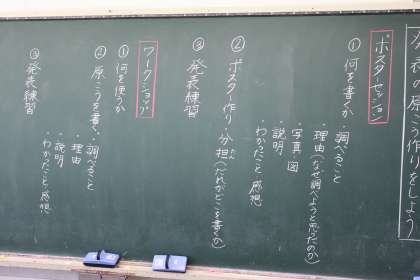 発表の原こう作りをしよう
ポスターセッション
① 何を書くか
・調べること
・理由(なぜ調べようと思ったのか)
・写真・図
・説明
・わかったこと 感想
② ポスター作り・分担(だれがどこを書くか)
たん
③ 発表練習
ワークショップ
① 何を使うか
② 原こうを書く・調べること
・理由
・説明
・わかったこと 感想
③ 発表練習